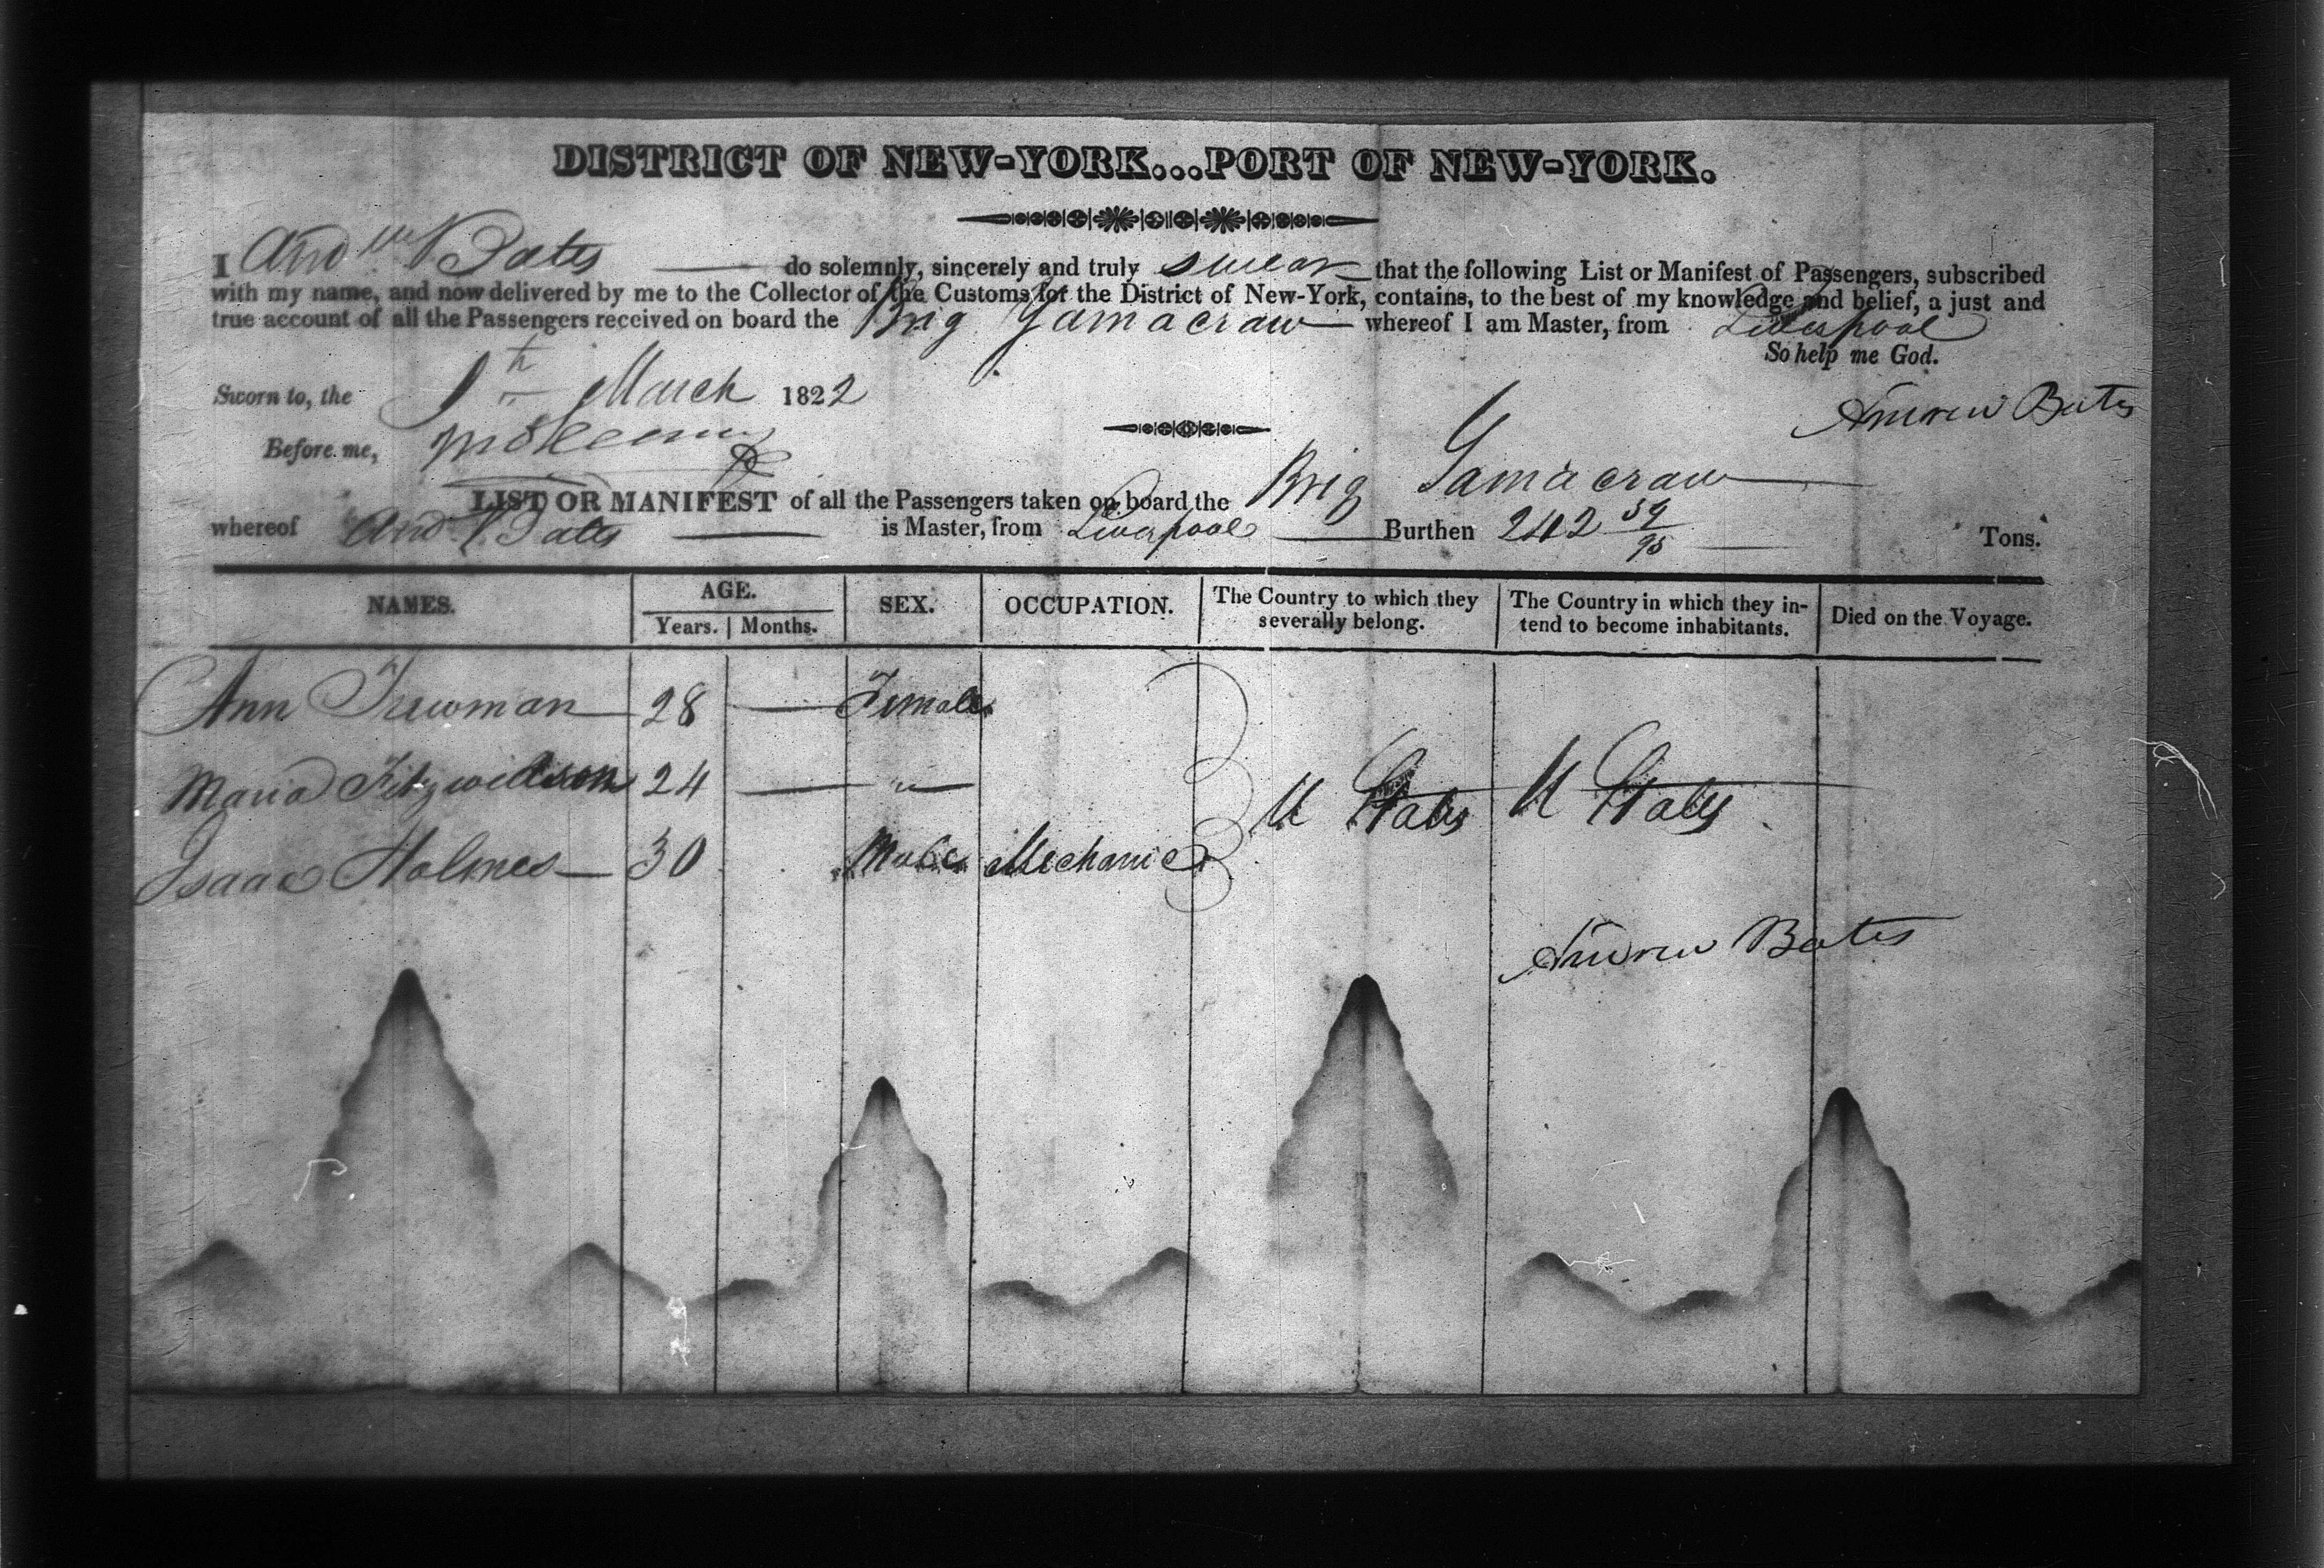 DISTRICT OF NEW-YORK...PORT OF NEW-YORK.
I And.w Bates do solemnly, sincerely and truly swear that the following List or Manifest of Passengers, subscribed
with my name, and now delivered by me to the Collector of the Customs for the District of New-York, contains, to the best of my knowledge and belief, a just and
true account of all the Passengers received on board the Brig Yamacraw whereof I am Master, from Liverpool
So help me God.
Sworn to, the 1th March 1822
Andrew Bates
Before me,
LIST OR MANIFEST of all the Passengers taken on board the Brig Yamacraw
whereof And. Bates is Master, from Liverpool Burthen 242 59/95 Tons.
NAMES. AGE. SEX. OCCUPATION. The Country to which they severally belong. The Country in which they intend to become inhabitants. Died on the Voyage.
Years. Months.
Ann Trewman 28 — Female
Maria Fitzwillson 24 — " U States U States
Isaac Holmes 30 Male Mechanic
Andrew Bates